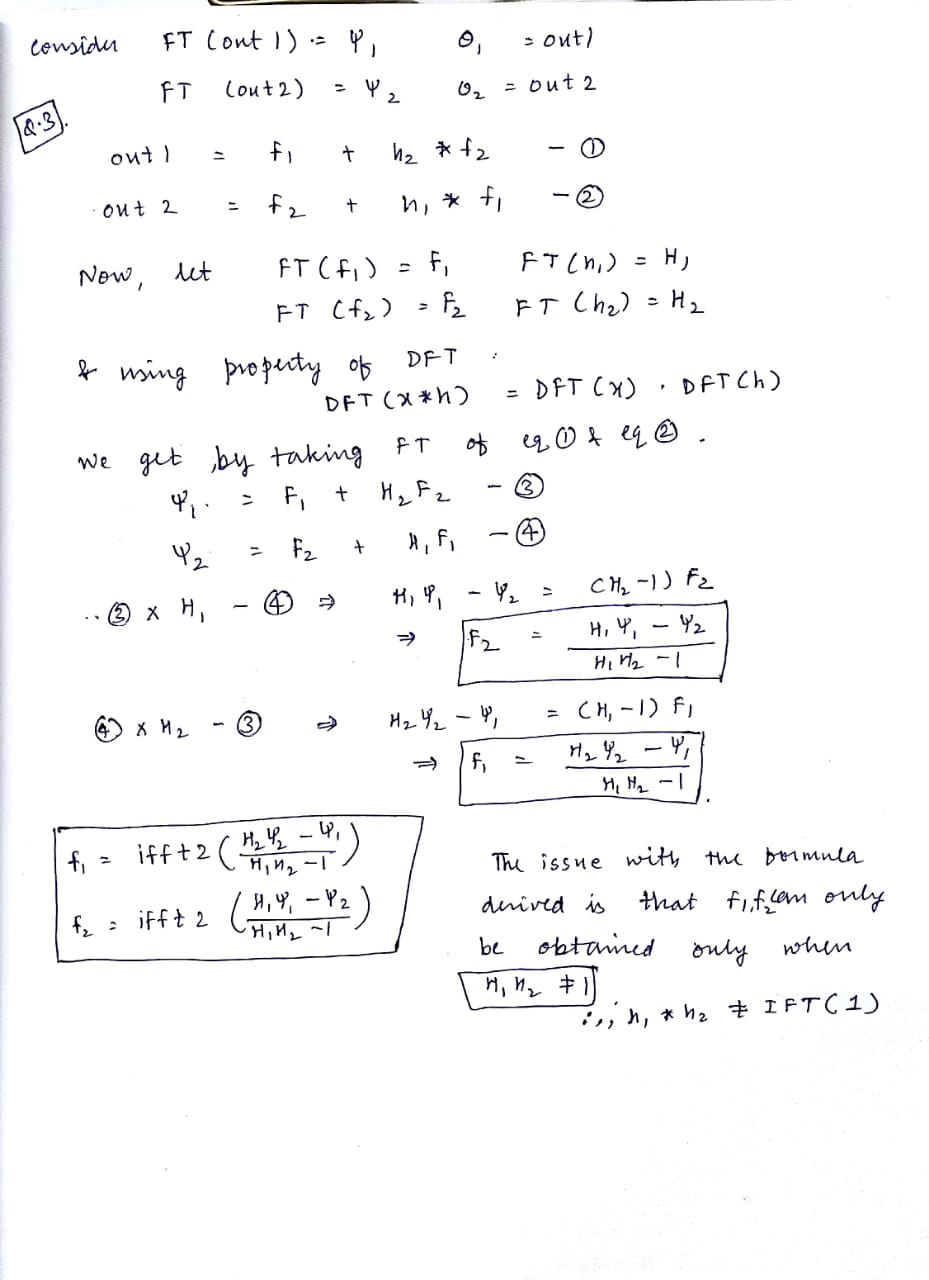 Consider FT (out 1) := Ψ₁ O₁ = out1
FT (out2) = Ψ₂ O₂ = out 2
Q.3).
out 1 = f₁ + h₂ * f₂ - ①
out 2 = f₂ + h₁ * f₁ - ②
Now, let FT (f₁) = F₁ FT (h₁) = H₁
FT (f₂) = F₂ FT (h₂) = H₂
& using property of DFT :
DFT (x * h) = DFT (x) . DFT (h)
we get , by taking FT of eq ① & eq ② .
Ψ₁. = F₁ + H₂F₂ - ③
Ψ₂ = F₂ + H₁F₁ - ④
.. ③ x H₁ - ④ ⇒ H₁Ψ₁ - Ψ₂ = (H₂ -1) F₂
⇒ F₂ = (H₁Ψ₁ - Ψ₂) / (H₁H₂ -1)
④ x H₂ - ③ ⇒ H₂Ψ₂ - Ψ₁ = (H₁ -1) F₁
⇒ F₁ = (H₂Ψ₂ - Ψ₁) / (H₁H₂ -1) .
f₁ = ifft2 ((H₂Ψ₂ - Ψ₁) / (H₁H₂ -1))
f₂ = ifft 2 ((H₁Ψ₁ - Ψ₂) / (H₁H₂ -1))
The issue with the formula
derived is that f₁,f₂ can only
be obtained only when
H₁H₂ ≠ 1
h₁ * h₂ ≠ IFT(1)